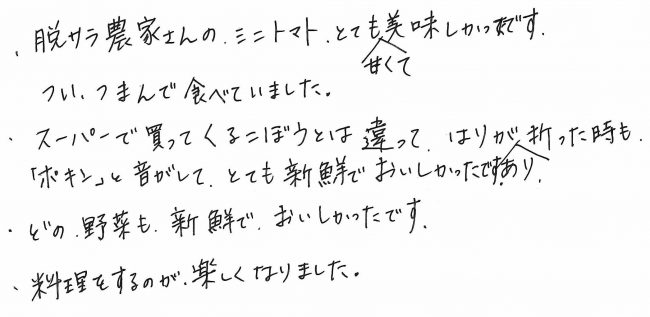 ・脱サラ農家さんの、ミニトマト、とても甘くて美味しかったです。
つい、つまんで食べていました。
・スーパーで買ってくるごぼうとは違って、はりがあり、折った時も、
「ポキン」と音がして、とても新鮮でおいしかったです。
・どの、野菜も、新鮮で、おいしかったです。
・料理をするのが、楽しくなりました。